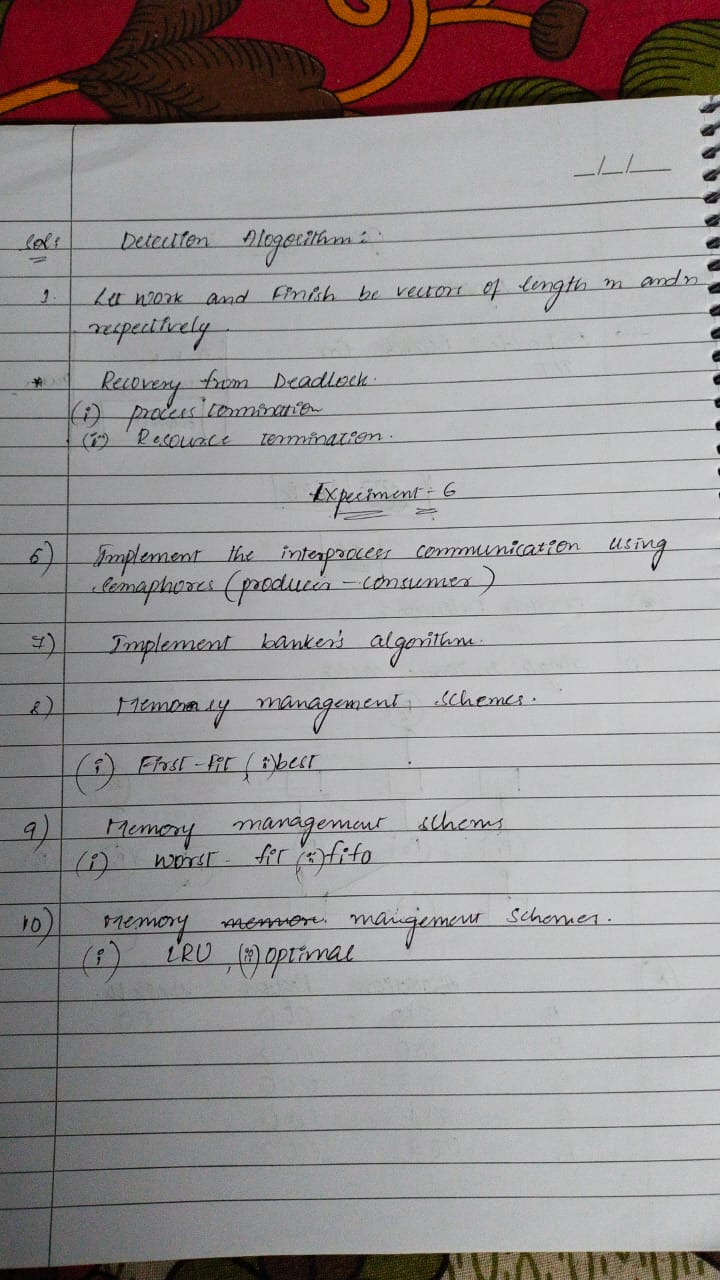 Sol:
Detection Alogorithm:
1. Let work and Finish be vectors of length m and n
respectively.
* Recovery from Deadlock.
(i) process termination
(ii) Resource termination.
Experiment - 6
6) Implement the interprocess communication using
semaphores (producer - consumer)
7) Implement banker's algorithm.
8) Memory management schemes.
(i) First - fit (ii) best
9) Memory management schems
(i) worst - fit (ii) fifo
10) Memory mangement schemes.
(i) LRU, (ii) optimal